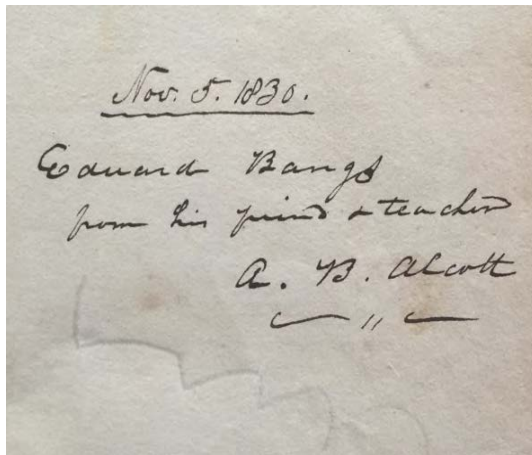 Nov. 5. 1830.
Edward Bangs
from his friend & teacher
A. B. Alcott